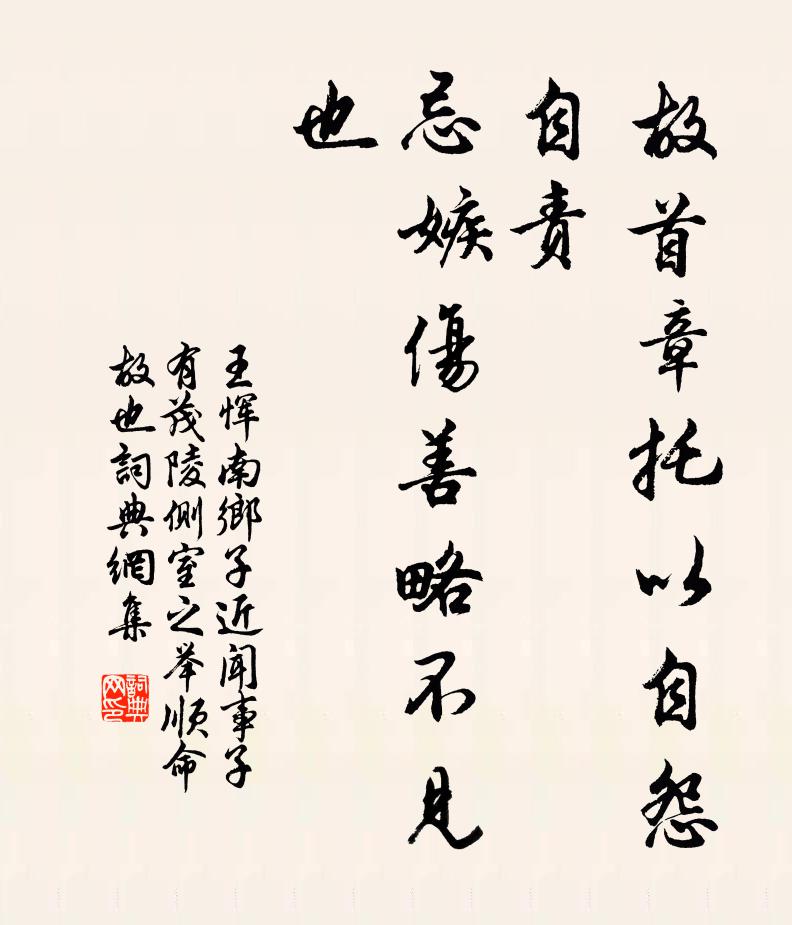 故首章托以自怨
自责
忌嫉傷善略不見
也
王恽南鄉子近闻事子
有茂陵側室之举順命
故也詞典網集
詞典
网印